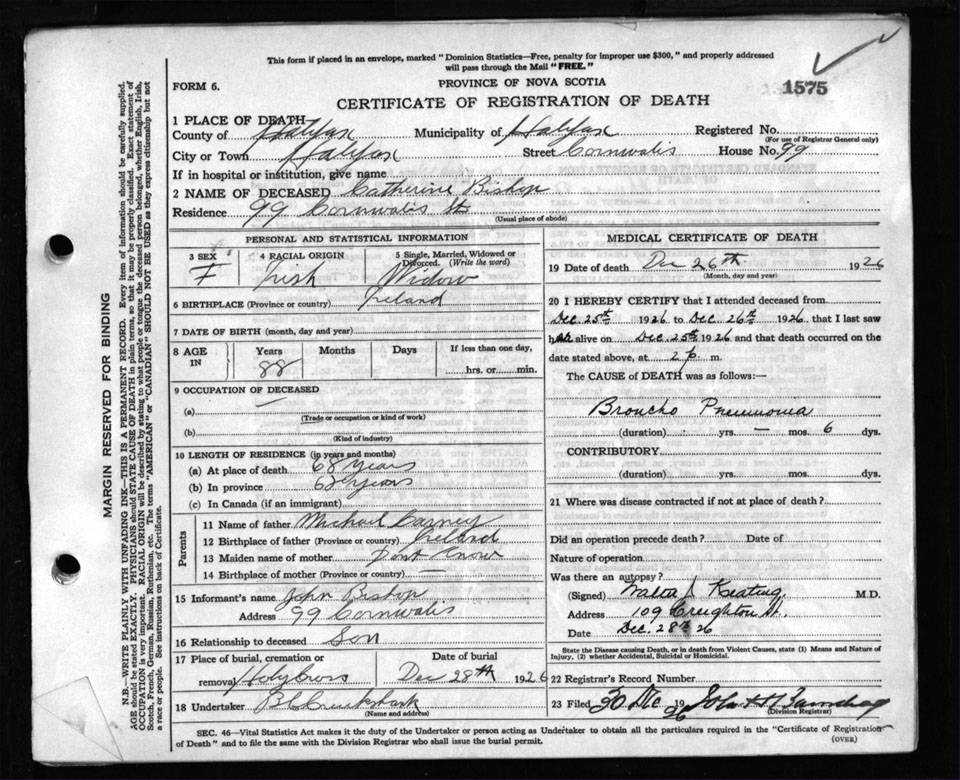 This form if placed in an envelope, marked "Dominion Statistics—Free, penalty for improper use $300," and properly addressed
will pass through the Mail "FREE."
1575
FORM 6.
PROVINCE OF NOVA SCOTIA
CERTIFICATE OF REGISTRATION OF DEATH
1 PLACE OF DEATH
County of Halifax Municipality of Halifax Registered No.
(For use of Registrar General only)
City or Town Halifax Street Cornwalis House No. 99
If in hospital or institution, give name
2 NAME OF DECEASED Catherine Bishop
Residence 99 Cornwalis St
(Usual place of abode)
PERSONAL AND STATISTICAL INFORMATION
3 SEX 4 RACIAL ORIGIN 5 Single, Married, Widowed or
Divorced. (Write the word)
F Irish Widow
6 BIRTHPLACE (Province or country) Ireland
7 DATE OF BIRTH (month, day and year)
8 AGE IN Years Months Days If less than one day,
88 hrs. or min.
9 OCCUPATION OF DECEASED
(a) —
(Trade or occupation or kind of work)
(b)
(Kind of industry)
10 LENGTH OF RESIDENCE (in years and months)
(a) At place of death 68 years
(b) In province 68 years
(c) In Canada (if an immigrant)
Parents
11 Name of father Michael Carney
12 Birthplace of father (Province or country) Ireland
13 Maiden name of mother Dont Know
14 Birthplace of mother (Province or country) —
15 Informant's name John Bishop
Address 99 Cornwalis
16 Relationship to deceased Son
17 Place of burial, cremation or Date of burial
removal Holy Cross Dec 28th 1926
18 Undertaker
(Name and address)
MEDICAL CERTIFICATE OF DEATH
19 Date of death Dec 26th 1926
(Month, day and year)
20 I HEREBY CERTIFY that I attended deceased from
Dec 25th 1926 to Dec 26th 1926 that I last saw
her alive on Dec 25th 1926 and that death occurred on the
date stated above, at 2 p. m.
The CAUSE of DEATH was as follows:—
Broncho Pneumonia
(duration) yrs. — mos. 6 dys.
CONTRIBUTORY
(duration) yrs. mos. dys.
21 Where was disease contracted if not at place of death?
Did an operation precede death? Date of
Nature of operation
Was there an autopsy?
(Signed) Walter J Keating M.D.
Address 109 Creighton St.
Date Dec. 28th 26
State the Disease causing Death, or in death from Violent Causes, state (1) Means and Nature of
Injury, (2) whether Accidental, Suicidal or Homicidal.
22 Registrar's Record Number
23 Filed 30 Dec 1926 John
(Division Registrar)
SEC. 46—Vital Statistics Act makes it the duty of the Undertaker or person acting as Undertaker to obtain all the particulars required in the "Certificate of Registration
of Death" and to file the same with the Division Registrar who shall issue the burial permit.
(OVER)
MARGIN RESERVED FOR BINDING
N.B.—WRITE PLAINLY WITH UNFADING INK—THIS IS A PERMANENT RECORD. Every item of information should be carefully supplied.
AGE should be stated EXACTLY. PHYSICIANS should STATE CAUSE OF DEATH in plain terms, so that it may be properly classified. Exact statement of
OCCUPATION is very important. RACIAL ORIGIN will be described by stating to what people or tongue the deceased person belonged, whether English, Irish,
Scotch, French, German, Russian, Ruthenian, etc. The terms "AMERICAN" or "CANADIAN" SHOULD NOT BE USED as they express citizenship but not
a race or people. See instructions on back of Certificate.